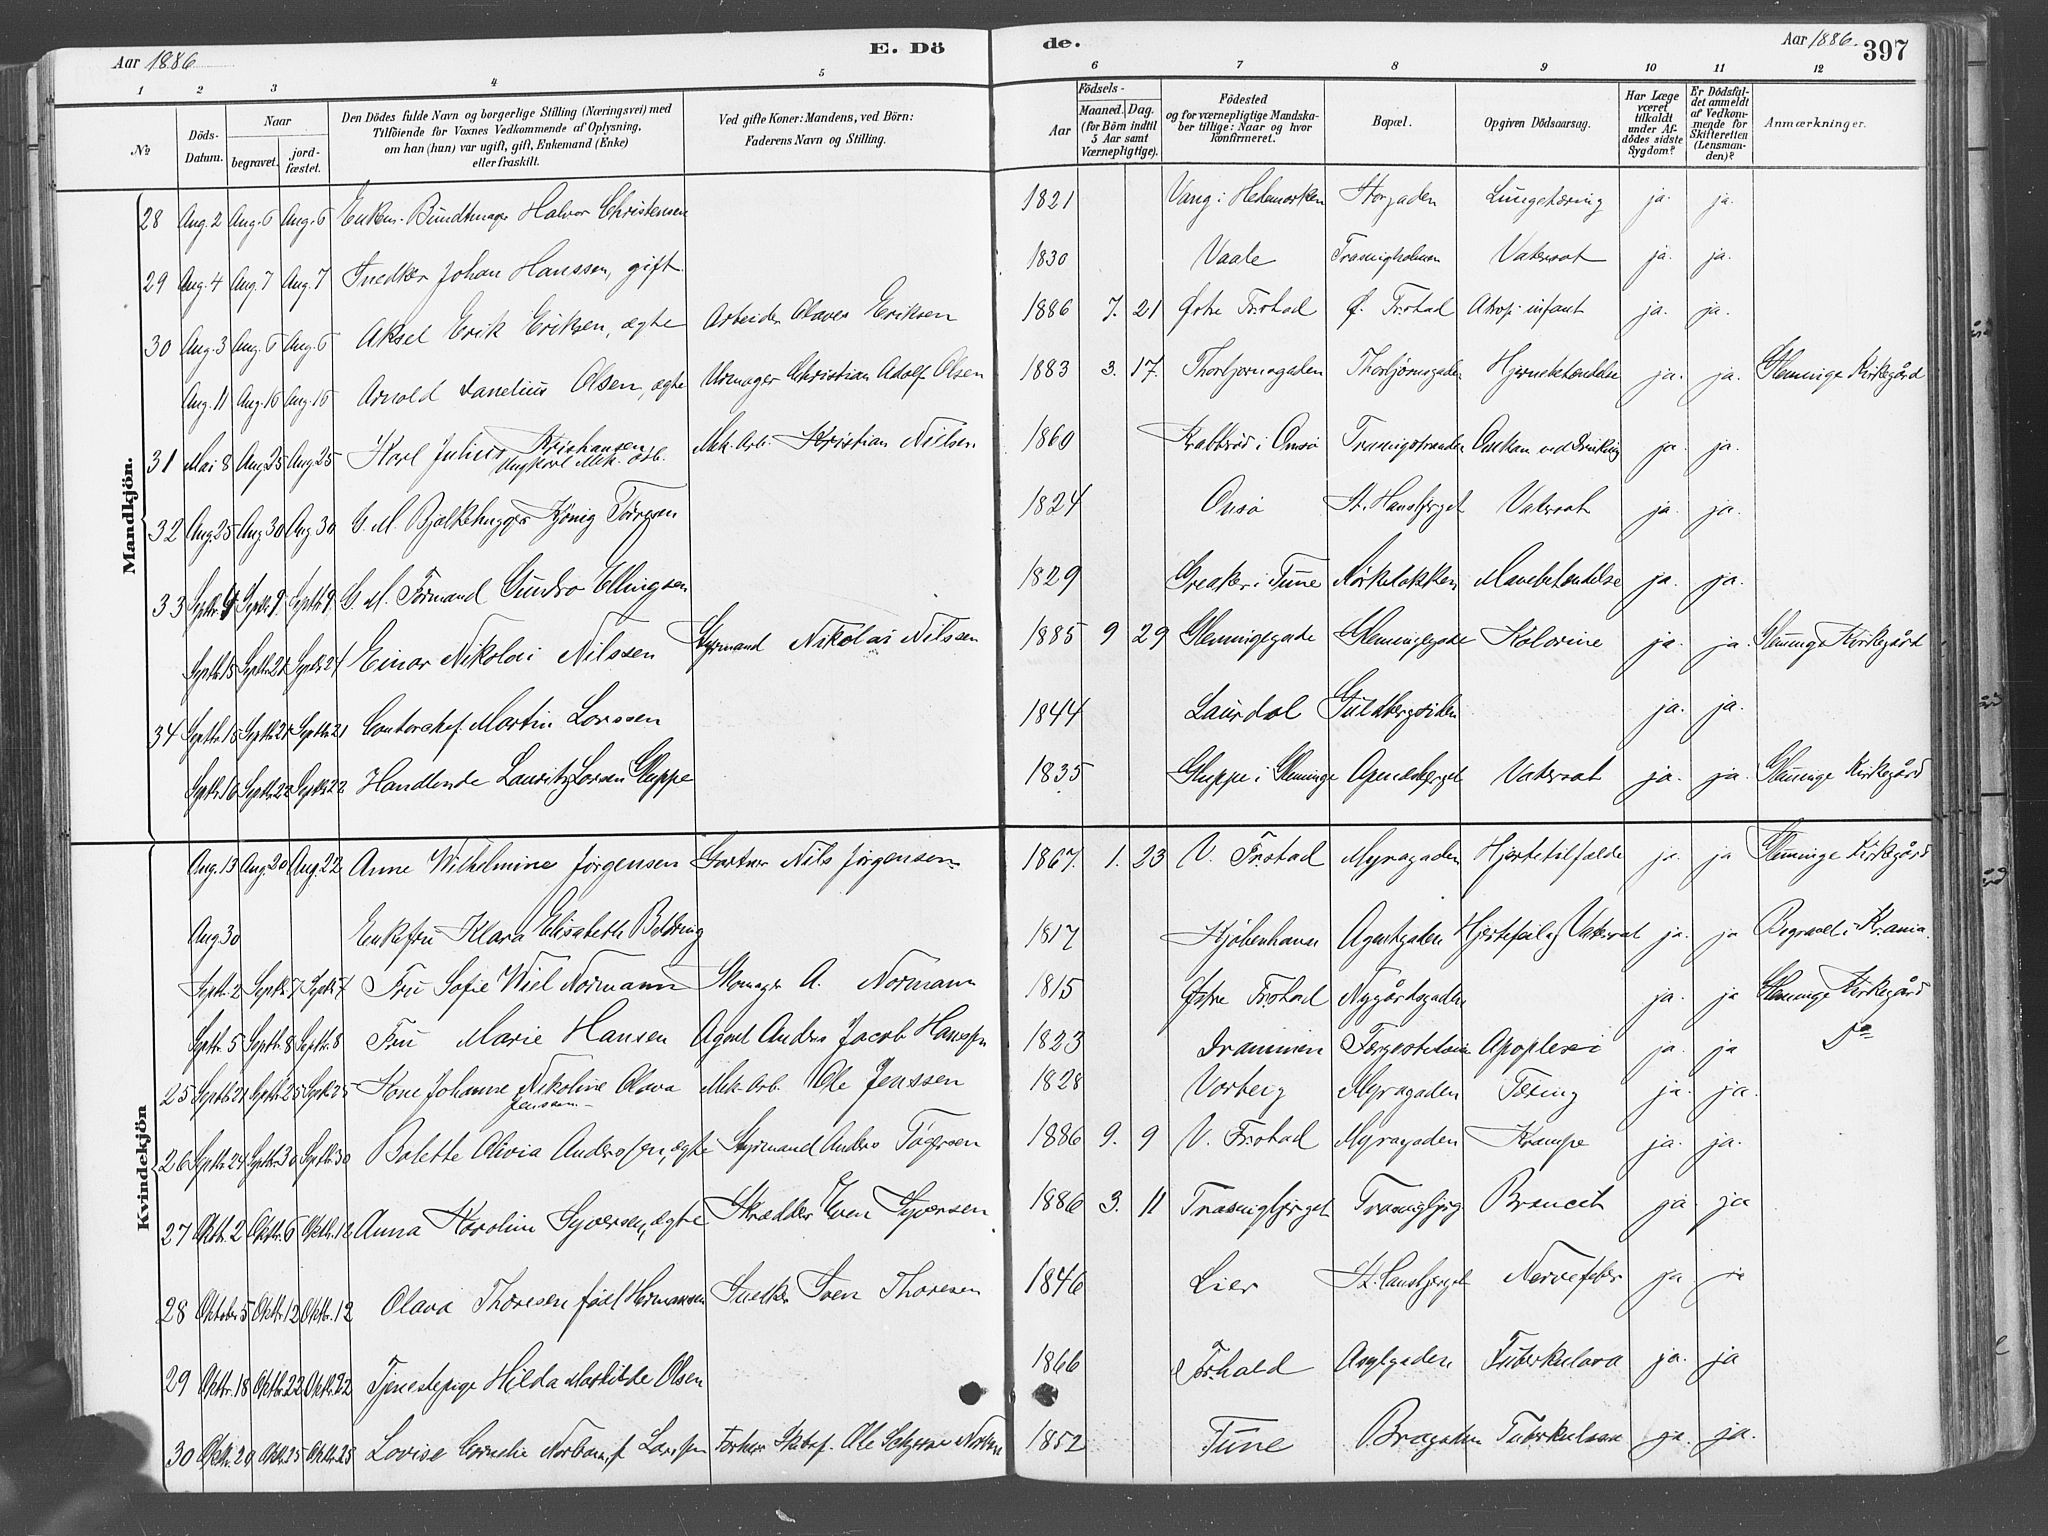 Aar 1886
E. Dö
de.
Aar 1886.
397
1 2 3 4 5 6 7 8 9 10 11 12
№
Döds-Datum.
Naar
begravet.
jord-fæstet.
Den Dödes fulde Navn og borgerlige Stilling (Næringsvei) med
Tilföiende for Voxnes Vedkommende af Oplysning,
om han (hun) var ugift, gift, Enkemand (Enke)
eller fraskilt.
Ved gifte Koner: Mandens, ved Börn:
Faderens Navn og Stilling.
Födsels-
Aar
Maaned. Dag.
(for Börn indtil
5 Aar samt
Værnepligtige).
Födested
og for værnepligtige Mandska-
ber tillige: Naar og hvor
konfirmeret.
Bopæl.
Opgiven Dödsaarsag.
Har Læge
været
tilkaldt
under Af-
dödes sidste
Sygdom?
Er Dödsfal-
det anmeldt
af Vedkom-
mende for
Skifteretten
(Lensman-
den)?
Anmærkninger.
Mandkjön.
28 Aug. 2 Aug. 6 Aug. 6 Bundtmager Halvor Christensen 1821 Vang i Hedemarken Storgaden Lungetæring ja. ja.
29 Aug. 4 Aug. 7 Aug. 7 Snedker Johan Hanssen, gift 1830 Vaale Vatersot ja. ja.
30 Aug. 3 Aug. 6 Aug. 6 Aksel Erik Eriksen, ægte Arbeider Olaves Eriksen 1886 7. 21 Østre Fr.stad Ø. Fr.stad Atrop. infant ja. ja.
Aug. 11 Aug. 16 Aug. 16 Arnold Danelius Olsen, ægte Urmager Christian Adolf Olsen 1883 3. 17. Thorbjørnsgaden Thorbjørnsgaden Hjernebetændelse ja. ja. Glemminge Kirkegård
31 Mai 8 Aug. 25 Aug. 25 Karl Julius Kristiansen
Ungkarl Mek. arb. Mek. Arb. Kristian Nielsen 1860 i Onsø Trosvigstranden ved Drukning ja. ja.
32 Aug. 25 Aug. 30 Aug. 30 G. M. Bjelkehugger Kjönig Torgesen 1824 Onsø St. Hansbjerget Vatersot ja. ja.
33 Septbr. 4 Septbr. 9 Septbr. 9 G. M. Formand Gundro Ellingsen 1829 Greaker i Tune Mavebetendelse ja. ja.
Septbr. 15 Septbr. 21 Septbr. 21 Einar Nikolai Nilssen Styrmand Nikolai Nilssen 1885 9 29 Glemmingegade Glemmingegade Kolerine ja. ja. Glemminge Kirkegård
34 Septbr. 15 Septbr. 21 Septbr. 21 Contorchef Martin Larssen 1844 Laurdal Guldbergsiden ja. ja.
Septbr. 16 Septbr. 22 Septbr. 22 Handlende Lauritz Larsen Gluppe 1835 Gluppe i Glemminge Apenesbjerget Vatersot ja. ja. Glemminge Kirkegård
Kvindekjön
Aug. 13 Aug. 20 Aug. 22 Anne Wilhelmine Jørgensen Gartner Nils Jørgensen 1867. 1. 23 V. Fr.stad Myragaden Hjertetilfælde ja. ja Glemminge Kirkegård
Aug 30 Enkefru Klara Elisabeth Boldring 1817 Kjøbenhavn Agentgaden Hjertefeil og Vatersot ja. ja Begravet i Kr.ania.
Septbr. 2 Septbr. 7 Septbr. 7 Fru Sofie Wiel Normann Skomager A. Normann 1815 Østre Fr.stad Nygårdsgaden ja. ja Glemminge Kirkegård
Septbr. 5 Septbr. 8 Septbr. 8 Fru Marie Hansen Agent Anders Jacob Hansen 1823 Drammen Færgestedsveien Apoplexi ja. ja Do
25 Septbr. 21 Septbr. 25 Septbr. 25 Kone Johanne Nikoline Olava
Jenssen Mek. Arb. Ole Jenssen 1828 Varberg Myragaden Tæring ja. ja.
26 Septbr. 24 Septbr. 30 Septbr. 30 Bolette Olivia Anderssen, ægte Styrmand Anders Tøgersen 1886 9. 9 V. Fr.stad Myragaden Krampe ja. ja.
27 Oktbr. 2 Oktbr. 6 Oktbr. 12 Anna Karoline Syversen, ægte Skrædder Even Syversen 1886 3. 11 Trosvigbjerget Trosvigbjerg Broncit ja. ja
28 Oktober 5 Oktbr. 12 Oktbr. 12 Olava Thoresen født Hermansen Snedker Sven Thoresen 1846 Lier St. Hansbjerget Nervefeber ja ja
29 Oktbr. 18 Oktbr. 22 Oktbr. 22 Tjenestepige Hilda Mathilde Olsen 1866 Fr.hald Asylgaden Tuberkulosa ja. ja
30 Oktbr. 20 Oktbr. 25 Oktbr. 25 Lovise Cornelie f. Larssen Ole 1852 Tune Bragaden Tuberkulosa ja. ja.